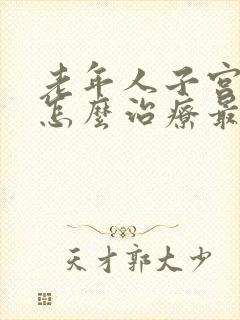 老年人子宫
怎麼治療最
天才郭大少